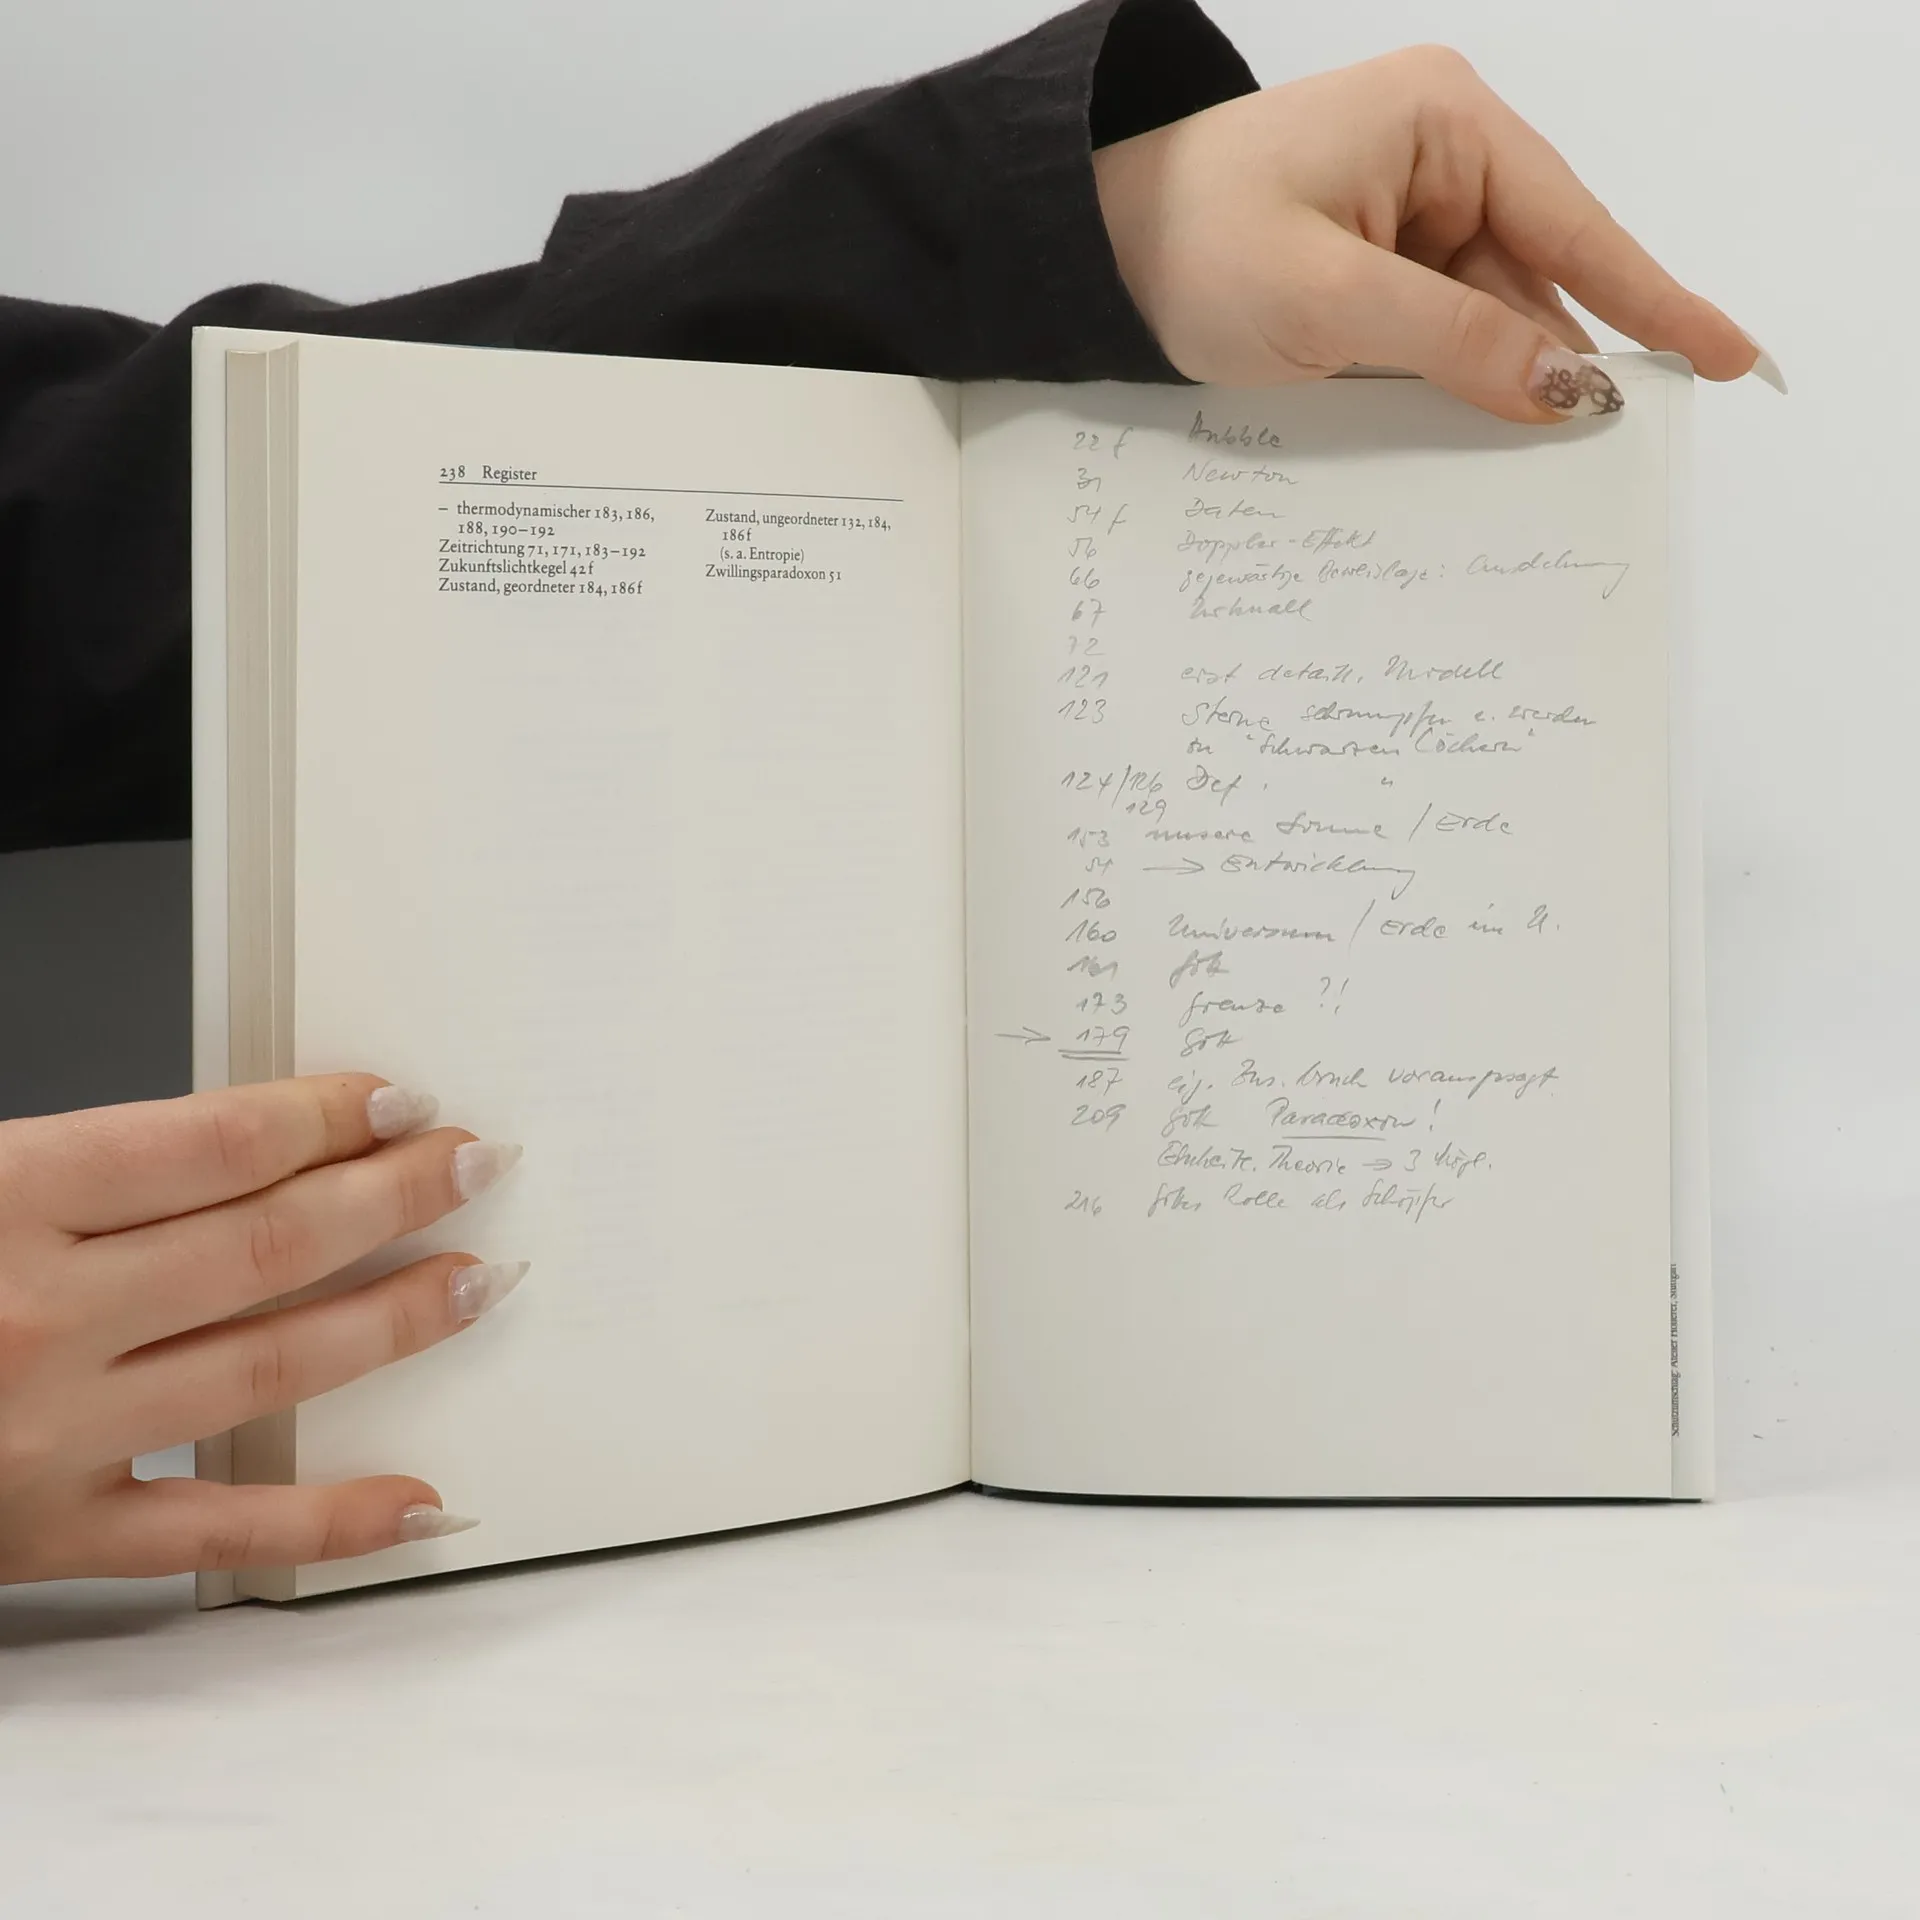 238 Register
– thermodynamischer 183, 186,
188, 190–192
Zeitrichtung 71, 171, 183–192
Zukunftslichtkegel 42f
Zustand, geordneter 184, 186f
Zustand, ungeordneter 132, 184,
186f
(s. a. Entropie)
Zwillingsparadoxon 51
22 f Hubble
31 Newton
54 f Daten
56 Doppler-Effekt
66 gegenwärtige Beweislage: Ausdehnung
67 Urknall
72
121 erst detaill. Modell
123 Sterne schrumpfen u. werden
zu "Schwarzen Löchern"
124/126 Def. "
129
153 unsere Sonne / Erde
54 → Entwicklung
156
160 Universum / Erde im U.
161 Gott
173 Grenze ?!
→ 179 Gott
187 eig. Zus.bruch vorausgesagt
209 Gott Paradoxon!
Einheitl. Theorie → 3 Mögl.
216 Gottes Rolle als Schöpfer
Schutzumschlag: Atelier Höllerer, Stuttgart